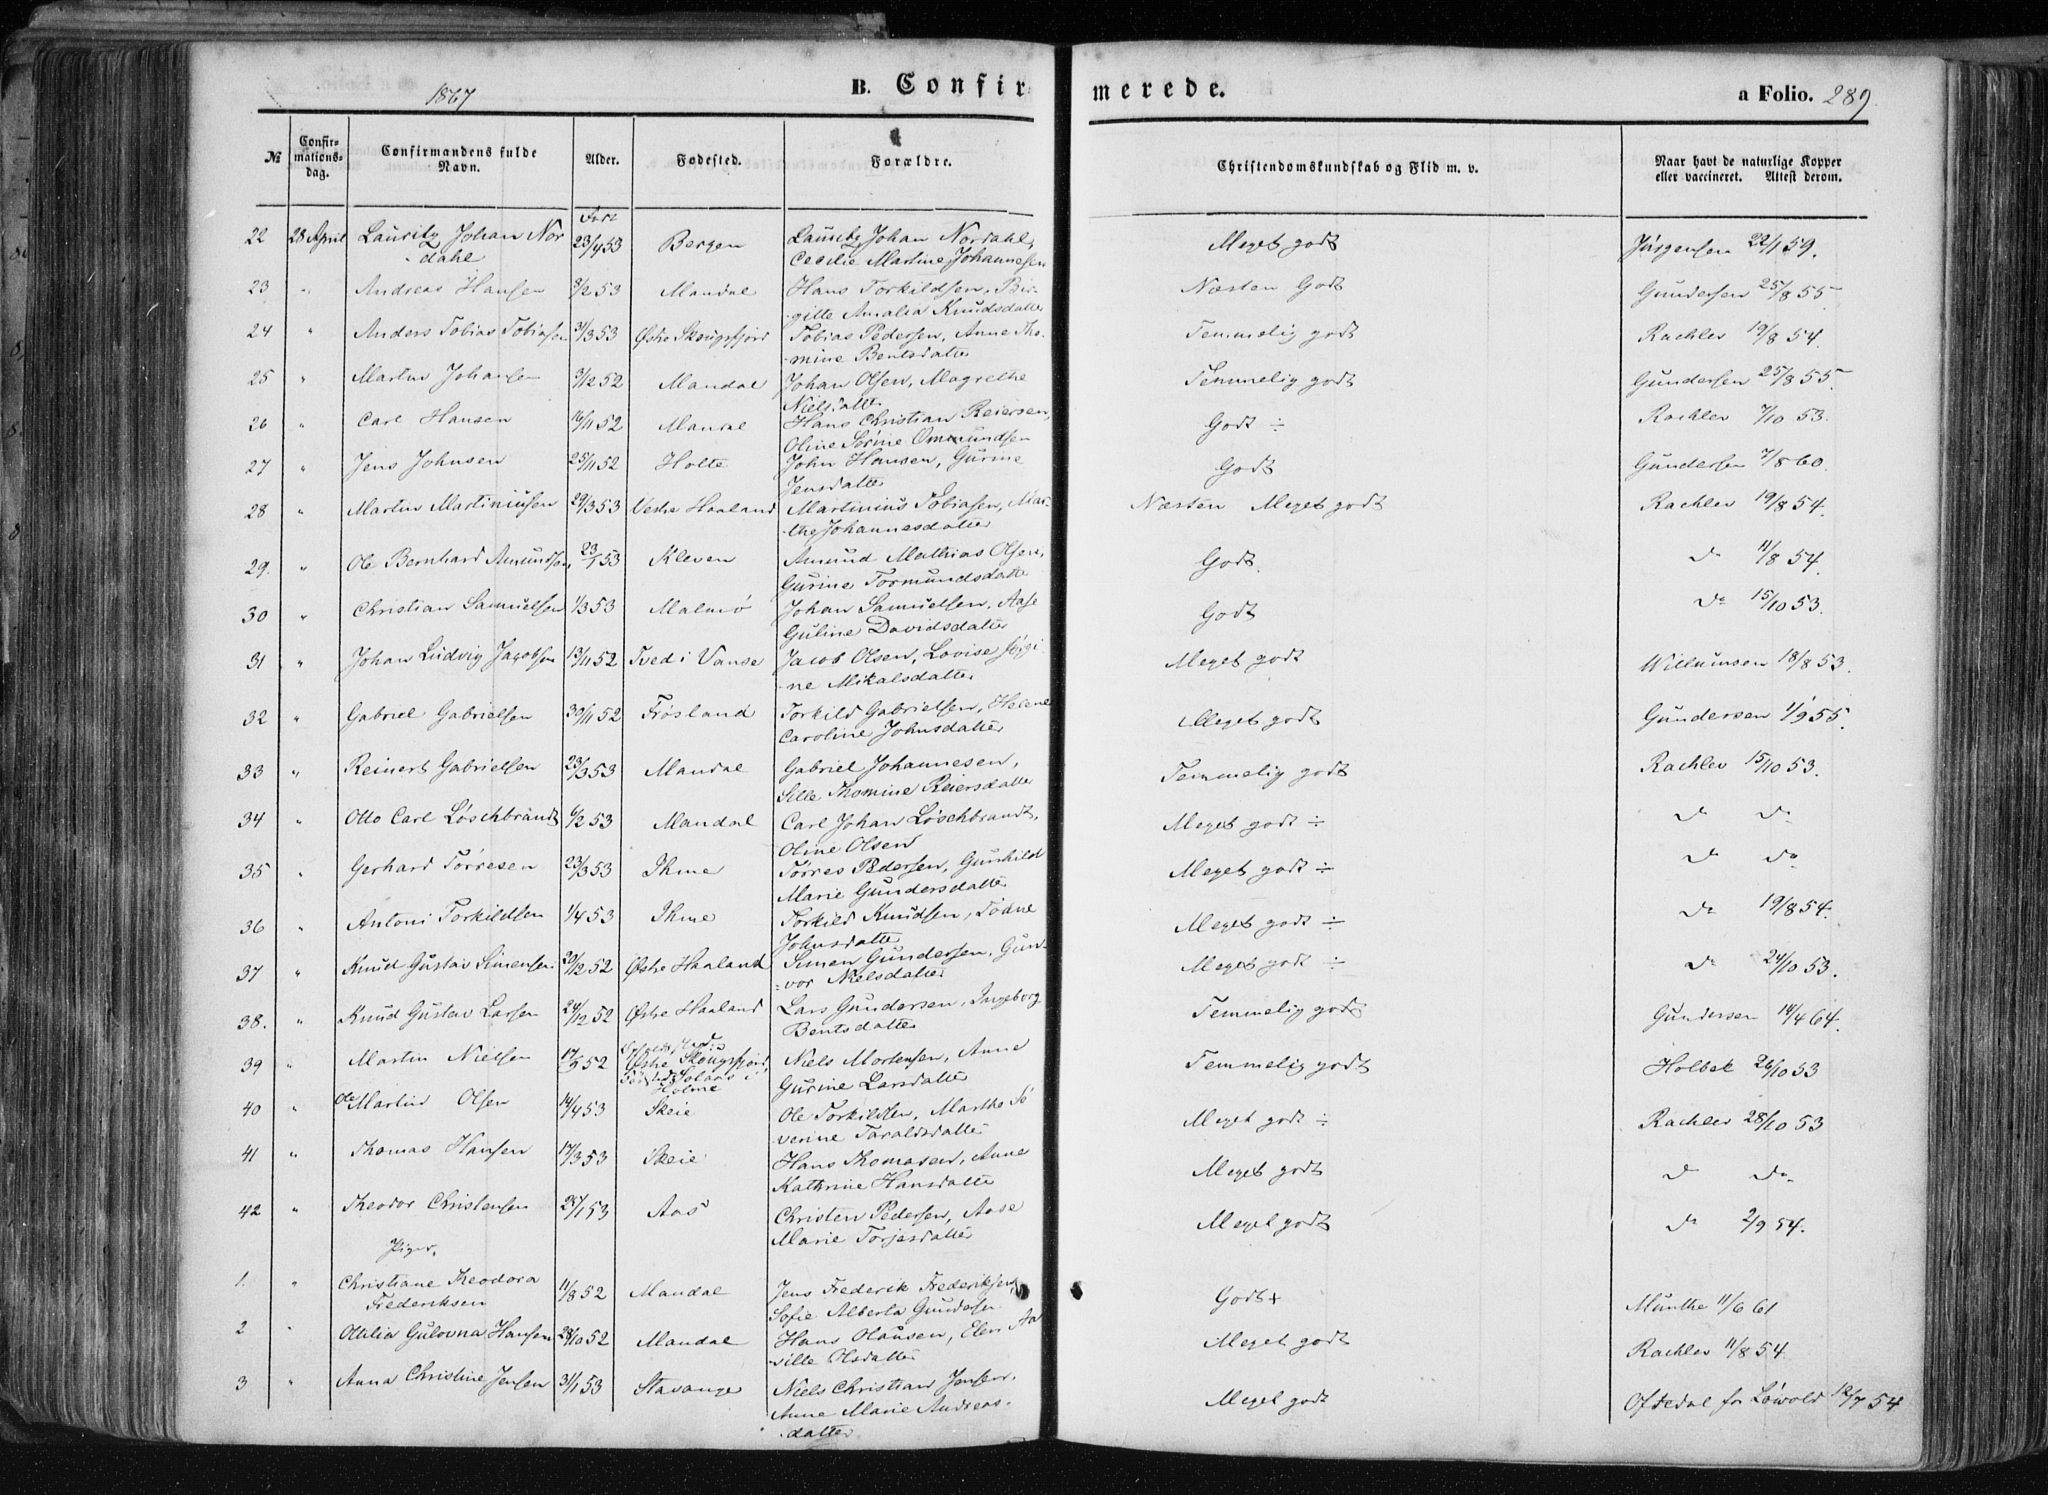 1867 B. Confirmerede. a Folio. 289.
№ Confirmationsdag. Confirmandens fulde Navn. Alder. Fødested. Forældre. Christendomskundskab og Flid m. v. Naar havt de naturlige Kopper eller vaccineret. Attest derom.
22 28 April Lauritz Johan Nor 23/4 53 Bergen Lauritz Johan Nordahl, Meget godt Jørgensen 22/1 59.
dahl Cecilie Martine Johannesen
23 " Andreas Hansen 8/2 53 Mandal Hans Torkildsen, Bir- Næsten Godt Gundersen 25/8 55
gitte Amalia Knudsdatter
24 " Anders Tobias Tobiasen 31/3 53 Østre Skougsfjord Tobias Pedersen, Anne Tho- Temmelig godt Rachlev 19/8 54.
mine Bentsdatter
25 " Martin Johansen 9/12 52 Mandal Johan Olsen, Magrethe Temmelig godt Gundersen 25/8 55.
Nielsdatter
26 " Carl Hansen 16/11 52 Mandal Hans Christian Reiersen, Godt ÷ Rachlev 7/10 53.
Oline Sørine Ommundsen
27 " Jens Johnsen 25/11 52 Holte John Hansen, Gurine Godt Gundersen 7/8 60.
Jensdatter
28 " Martin Martiniusen 29/3 53 Vestre Haaland Martinius Tobiasen, Mar- Næsten Meget godt Rachlev 19/8 54.
the Johannesdatter
29. " Ole Bernhard Amundsen 23/1 53 Kleven Amund Mathias Olsen, Godt. do 11/8 54.
Gurine Tormundsdatter
30 " Christian Samuelsen 1/3 53 Malmø Johan Samuelsen, Aase Godt do 15/10 53.
Guline Davidsdatter
31 " Johan Ludvig Jacobsen 13/11 52 Tved i Vanse Jacob Olsen, Lovise Meget godt Willumsen 18/8 53.
ne Mikalsdatter
32 " Gabriel Gabrielsen 30/11 52 Frøsland Torkild Gabrielsen, Helene Meget godt Gundersen 1/9 55.
Caroline Johnsdatter
33 " Reinert Gabrielsen 23/3 53 Mandal Gabriel Johannesen, Temmelig godt Rachlev 15/10 53.
Sille Thomine Reiersdatter
34 " Otto Carl Løschbrandt 6/2 53 Mandal Carl Johan Løschbrandt, Meget godt ÷ do do
Oline Olsen
35 " Gerhard Tørresen 23/3 53 Ihme Tørres Pedersen, Gunhild Meget godt ÷ do do
Marie Gundersdatter
36 " Antoni Torkildsen 1/4 53 Ihme Torkild Knudsen, Tødne Meget godt ÷ do 19/8 54.
Johnsdatter
37 " Knud Gustav Simensen 20/12 52 Østre Haaland Simen Gundersen, Gun- Meget godt ÷ do 24/10 53.
vor Nielsdatter
38. " Knud Gustav Larsen 24/12 52 Østre Haaland Lars Gundersen, Ingeborg Temmelig godt Gundersen 14/4 64.
Bentsdatter
39 " Martin Nielsen 17/9 52 Østre Skougsfjord, Niels Mortensen, Anne Temmelig godt Holbek 26/10 53
i Holme Gurine Larsdatter
40 " Ole Martin Olsen 14/4 53 Skeie Ole Torkildsen, Marthe Se Meget godt ÷ Rachlev 28/10 53
verine Taraldsdatter
41 " Thomas Hansen 17/3 53 Skeie Hans Thomasen, Anne Meget godt do do
Kathrine Hansdatter
42 " Theodor Christensen 25/1 53 Aas Christen Pedersen, Aase Meget godt do 2/9 54.
Marie Torjesdatter
Piger.
1. " Christiane Theodora 11/8 52 Mandal Jens Frederik Frederiksen, Godt + Munthe 11/6 61
Frederiksen Sofie Alberta Gundersen
2 " Ottilia Gulovna Hansen 28/10 52 Mandal Hans Hansen, Elen Aa Meget godt Rachlev 11/8 54
ville Olsdatter
3 " Anna Christine Jensen 31/1 53 Stavanger Niels Christian Jensen, Meget godt Oftedal for Løwold 12/7 54
Anne Marie Andreas-
datter